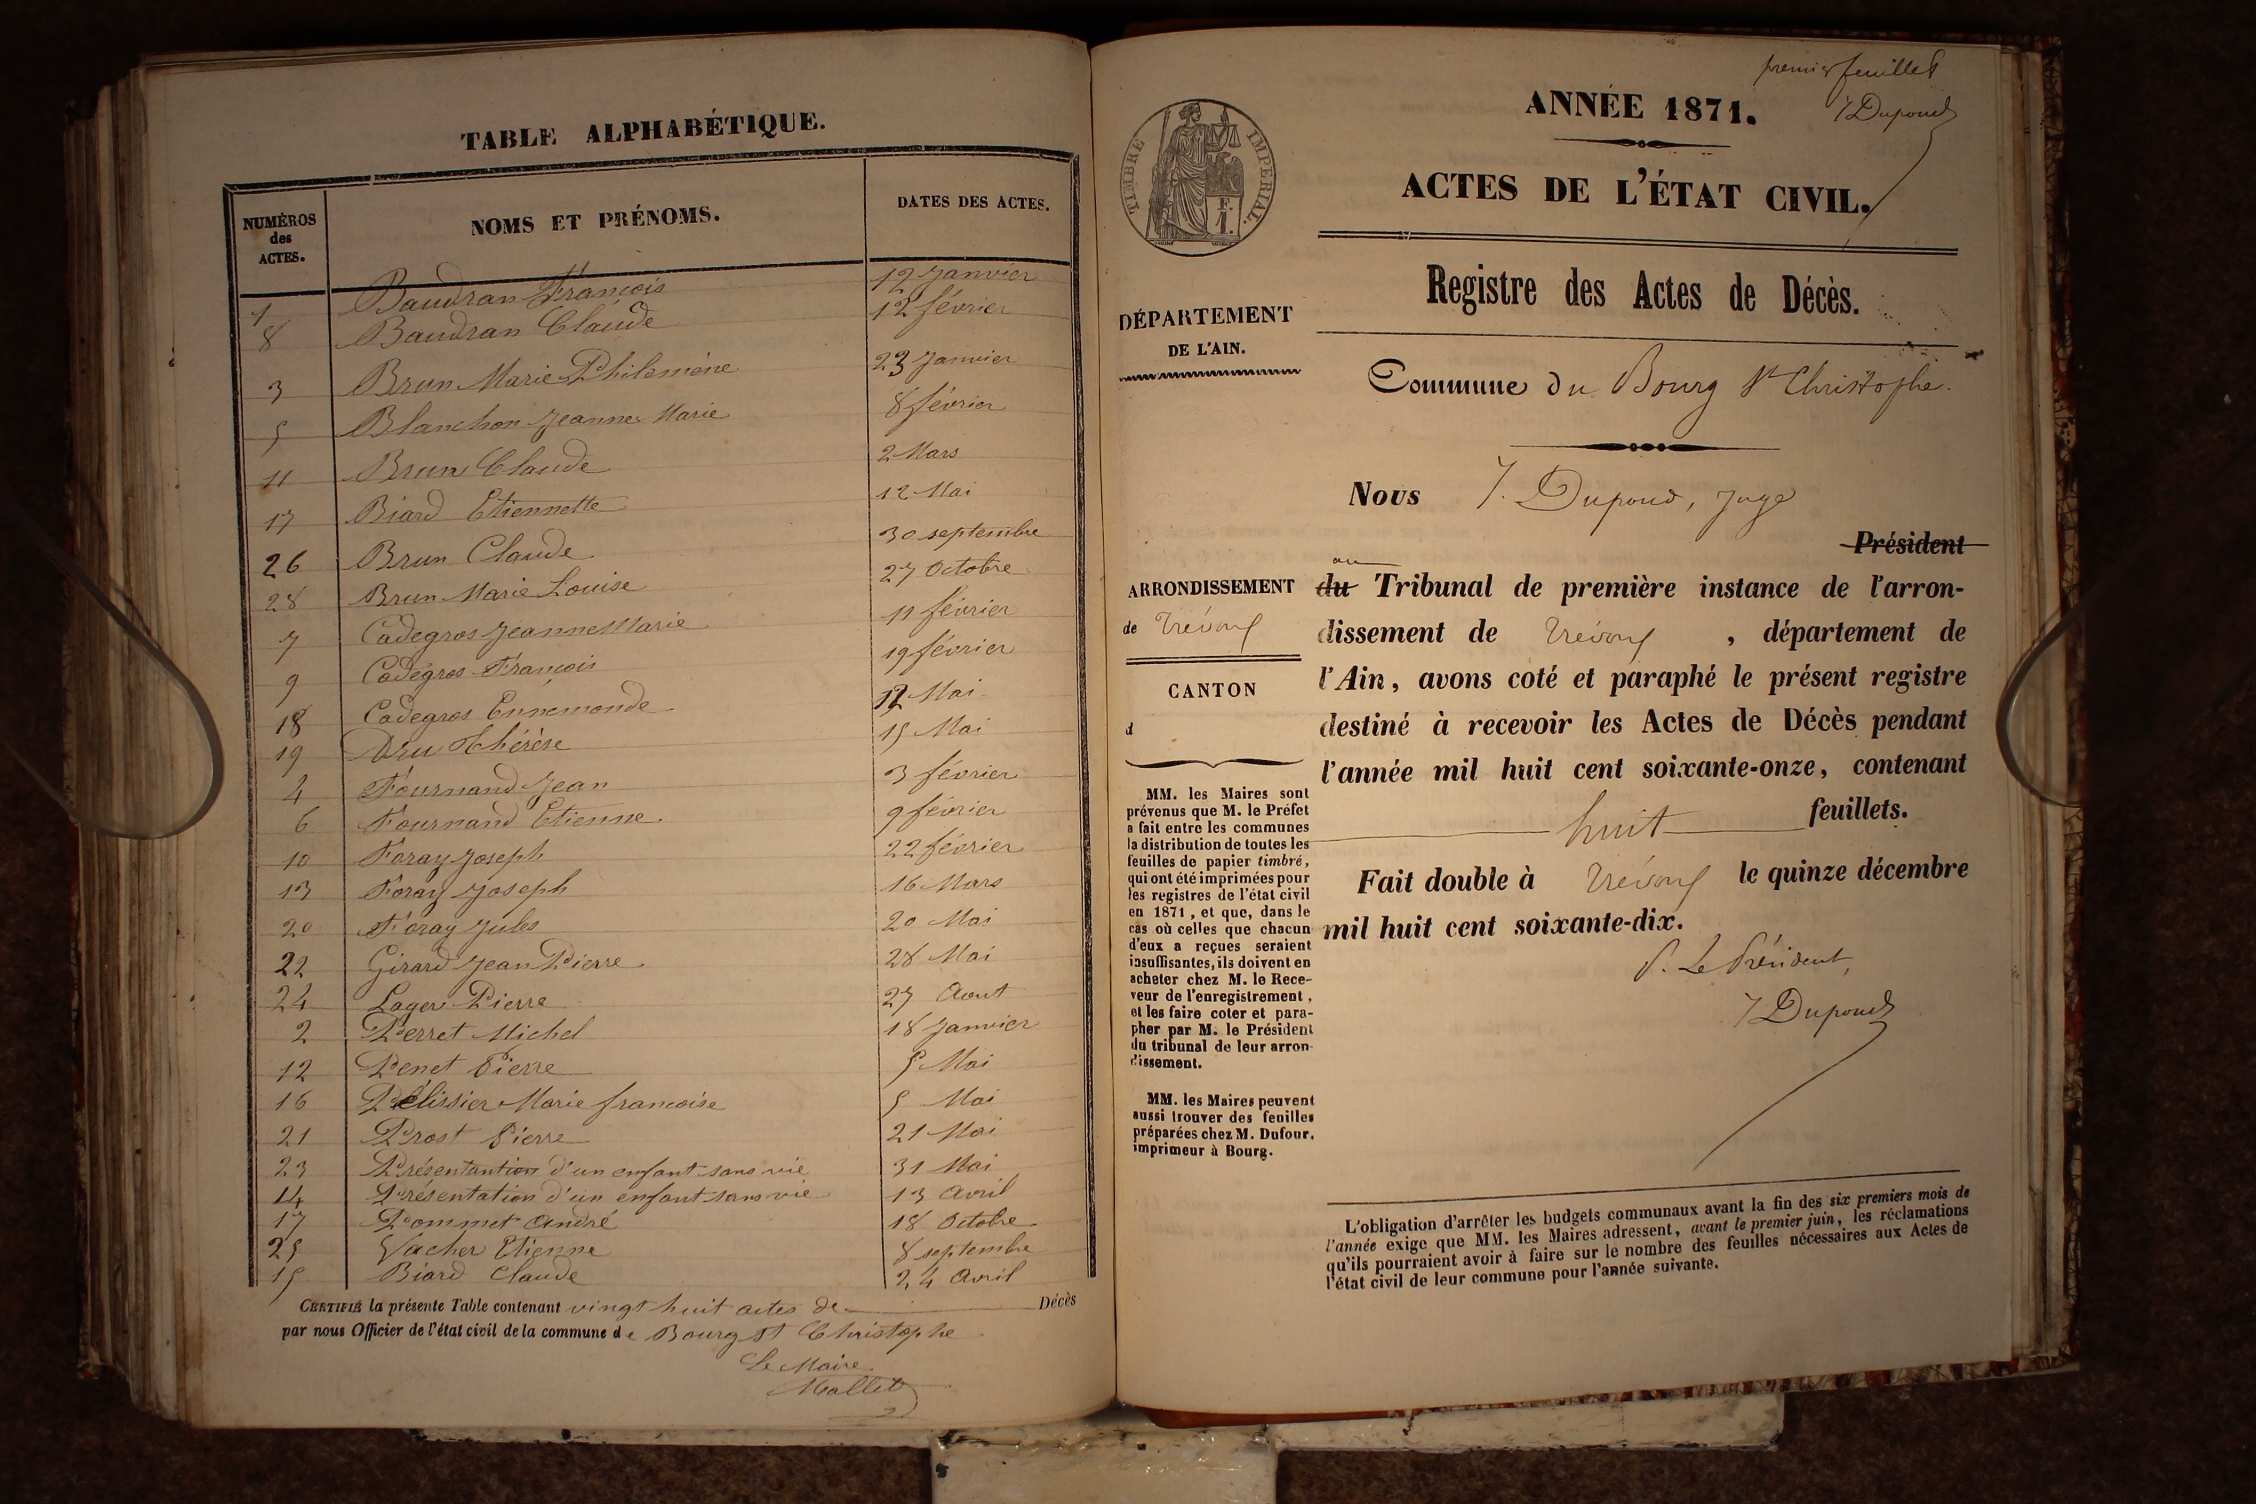 TABLE ALPHABÉTIQUE.
NUMÉROS des ACTES. NOMS ET PRÉNOMS. DATES DES ACTES.
1 Baudran François 12 Janvier
8 Baudran Claude 12 février
3 Brun Marie Philomène 23 Janvier
5 Blanchon Jeanne Marie 8 février
11 Brun Claude 2 Mars
17 Biard Etiennette 12 Mai
26 Brun Claude 30 septembre
28 Brun Marie Louise 27 Octobre
7 Cadegros Jeanne Marie 11 février
9 Cadegros François 19 février
18 Cadegros Ennemonde 12 Mai
19 Dru Thérèse 15 Mai
4 Fournand Jean 3 février
6 Fournand Etienne 9 février
10 Foray Joseph 22 février
13 Foray Joseph 16 Mars
20 Foray Jules 20 Mai
22 Girard Jean Pierre 28 Mai
24 Lager Pierre 27 Aout
2 Perret Michel 18 Janvier
12 Penet Pierre 5 Mai
16 Pélissier Marie françoise 5 Mai
21 Prost Pierre 21 Mai
23 Présentantion d'un enfant sans vie 31 Mai
14 Présentation d'un enfant sans vie 13 Avril
17 Pommet André 18 Octobre
25 Vacher Etienne 8 septembre
15 Biard Claude 24 Avril
CERTIFIÉ la présente Table contenant vingt huit actes de Décès
par nous Officier de l'état civil de la commune de Bourg St Christophe
Le Maire
Mallet
premier feuillet
J Dupond
TIMBRE IMPÉRIAL.
F.
1.
ANNÉE 1871.
ACTES DE L'ÉTAT CIVIL.
Registre des Actes de Décès.
DÉPARTEMENT
DE L'AIN.
Commune du Bourg St Christophe.
Nous J. Dupond, Juge
Président
au
du Tribunal de première instance de l'arron-
dissement de Trévoux, département de
l'Ain, avons coté et paraphé le présent registre
destiné à recevoir les Actes de Décès pendant
l'année mil huit cent soixante-onze, contenant
huit feuillets.
Fait double à Trévoux le quinze décembre
mil huit cent soixante-dix.
P. Le Président,
J Dupond
ARRONDISSEMENT
de Trévoux
CANTON
d
MM. les Maires sont
prévenus que M. le Préfet
a fait entre les communes
la distribution de toutes les
feuilles de papier timbré,
qui ont été imprimées pour
les registres de l'état civil
en 1871, et que, dans le
cas où celles que chacun
d'eux a reçues seraient
insuffisantes, ils doivent en
acheter chez M. le Rece-
veur de l'enregistrement,
et les faire coter et para-
pher par M. le Président
du tribunal de leur arron-
dissement.
MM. les Maires peuvent
aussi trouver des feuilles
préparées chez M. Dufour,
imprimeur à Bourg.
L'obligation d'arrêter les budgets communaux avant la fin des six premiers mois de
l'année exige que MM. les Maires adressent, avant le premier juin, les réclamations
qu'ils pourraient avoir à faire sur le nombre des feuilles nécessaires aux Actes de
l'état civil de leur commune pour l'année suivante.